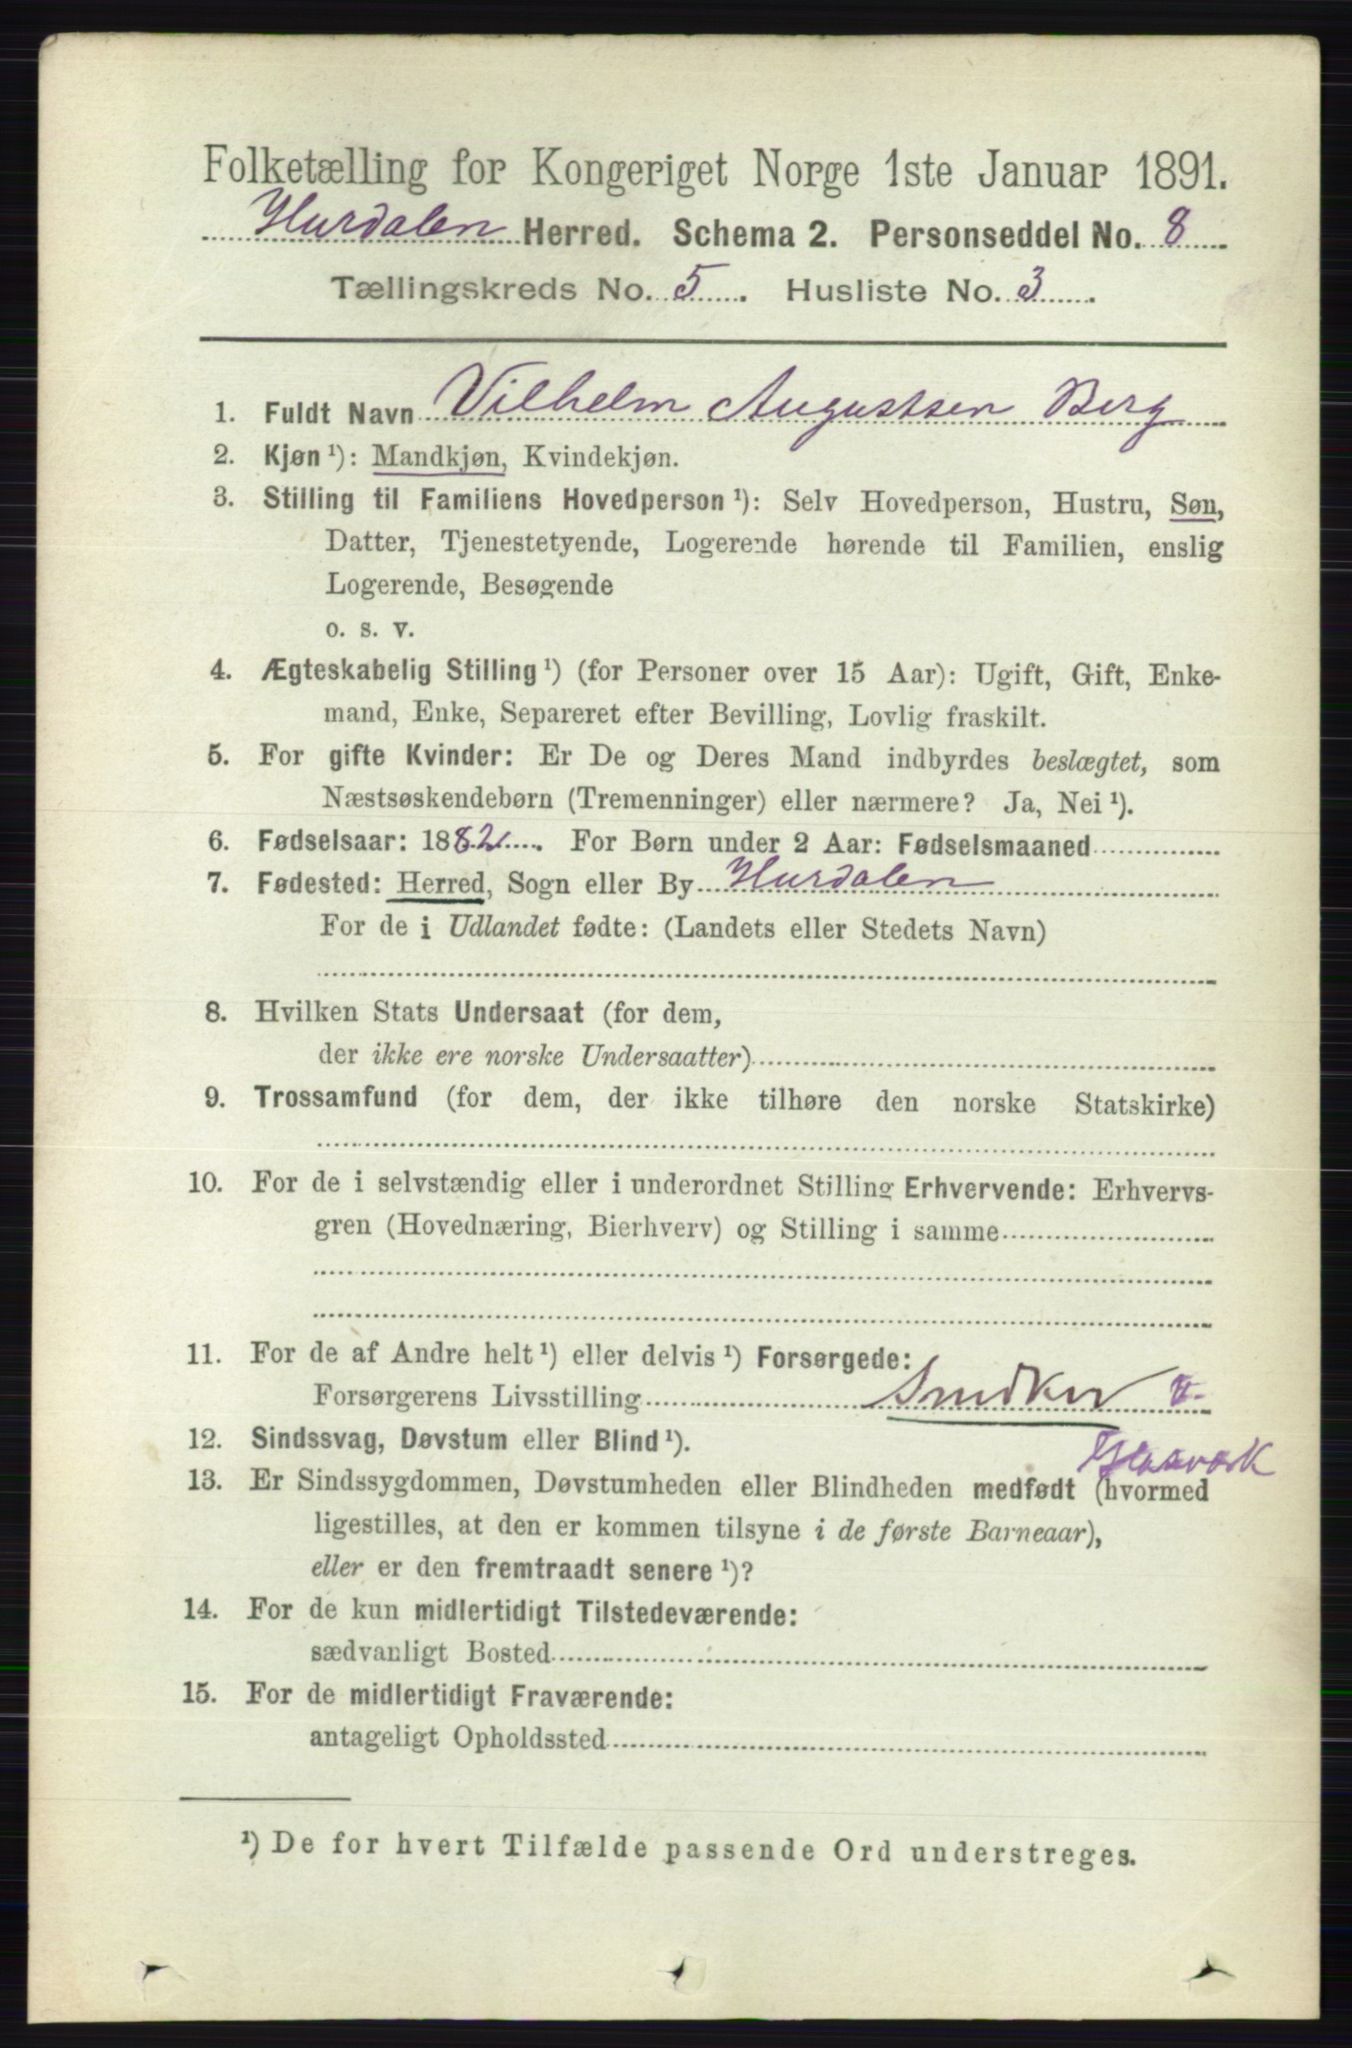 Folketælling for Kongeriget Norge 1ste Januar 1891.
Hurdalen Herred. Schema 2. Personseddel No. 8
Tællingskreds No. 5. Husliste No. 3.
1. Fuldt Navn Vilhelm Augustsen Berg
2. Kjøn ¹): Mandkjøn, Kvindekjøn.
3. Stilling til Familiens Hovedperson ¹): Selv Hovedperson, Hustru, Søn,
Datter, Tjenestetyende, Logerende hørende til Familien, enslig
Logerende, Besøgende
o. s. v.
4. Ægteskabelig Stilling ¹) (for Personer over 15 Aar): Ugift, Gift, Enke-
mand, Enke, Separeret efter Bevilling, Lovlig fraskilt.
5. For gifte Kvinder: Er De og Deres Mand indbyrdes beslægtet, som
Næstsøskendebørn (Tremenninger) eller nærmere? Ja, Nei ¹).
6. Fødselsaar: 1882. For Børn under 2 Aar: Fødselsmaaned
7. Fødested: Herred, Sogn eller By Hurdalen
For de i Udlandet fødte: (Landets eller Stedets Navn)
8. Hvilken Stats Undersaat (for dem,
der ikke ere norske Undersaatter)
9. Trossamfund (for dem, der ikke tilhøre den norske Statskirke)
10. For de i selvstændig eller i underordnet Stilling Erhvervende: Erhvervs-
gren (Hovednæring, Bierhverv) og Stilling i samme
11. For de af Andre helt ¹) eller delvis ¹) Forsørgede:
Forsørgerens Livsstilling Snedker
12. Sindssvag, Døvstum eller Blind ¹).
Glasværk
13. Er Sindssygdommen, Døvstumheden eller Blindheden medfødt (hvormed
ligestilles, at den er kommen tilsyne i de første Barneaar),
eller er den fremtraadt senere ¹)?
14. For de kun midlertidigt Tilstedeværende:
sædvanligt Bosted
15. For de midlertidigt Fraværende:
antageligt Opholdssted
¹) De for hvert Tilfælde passende Ord understreges.